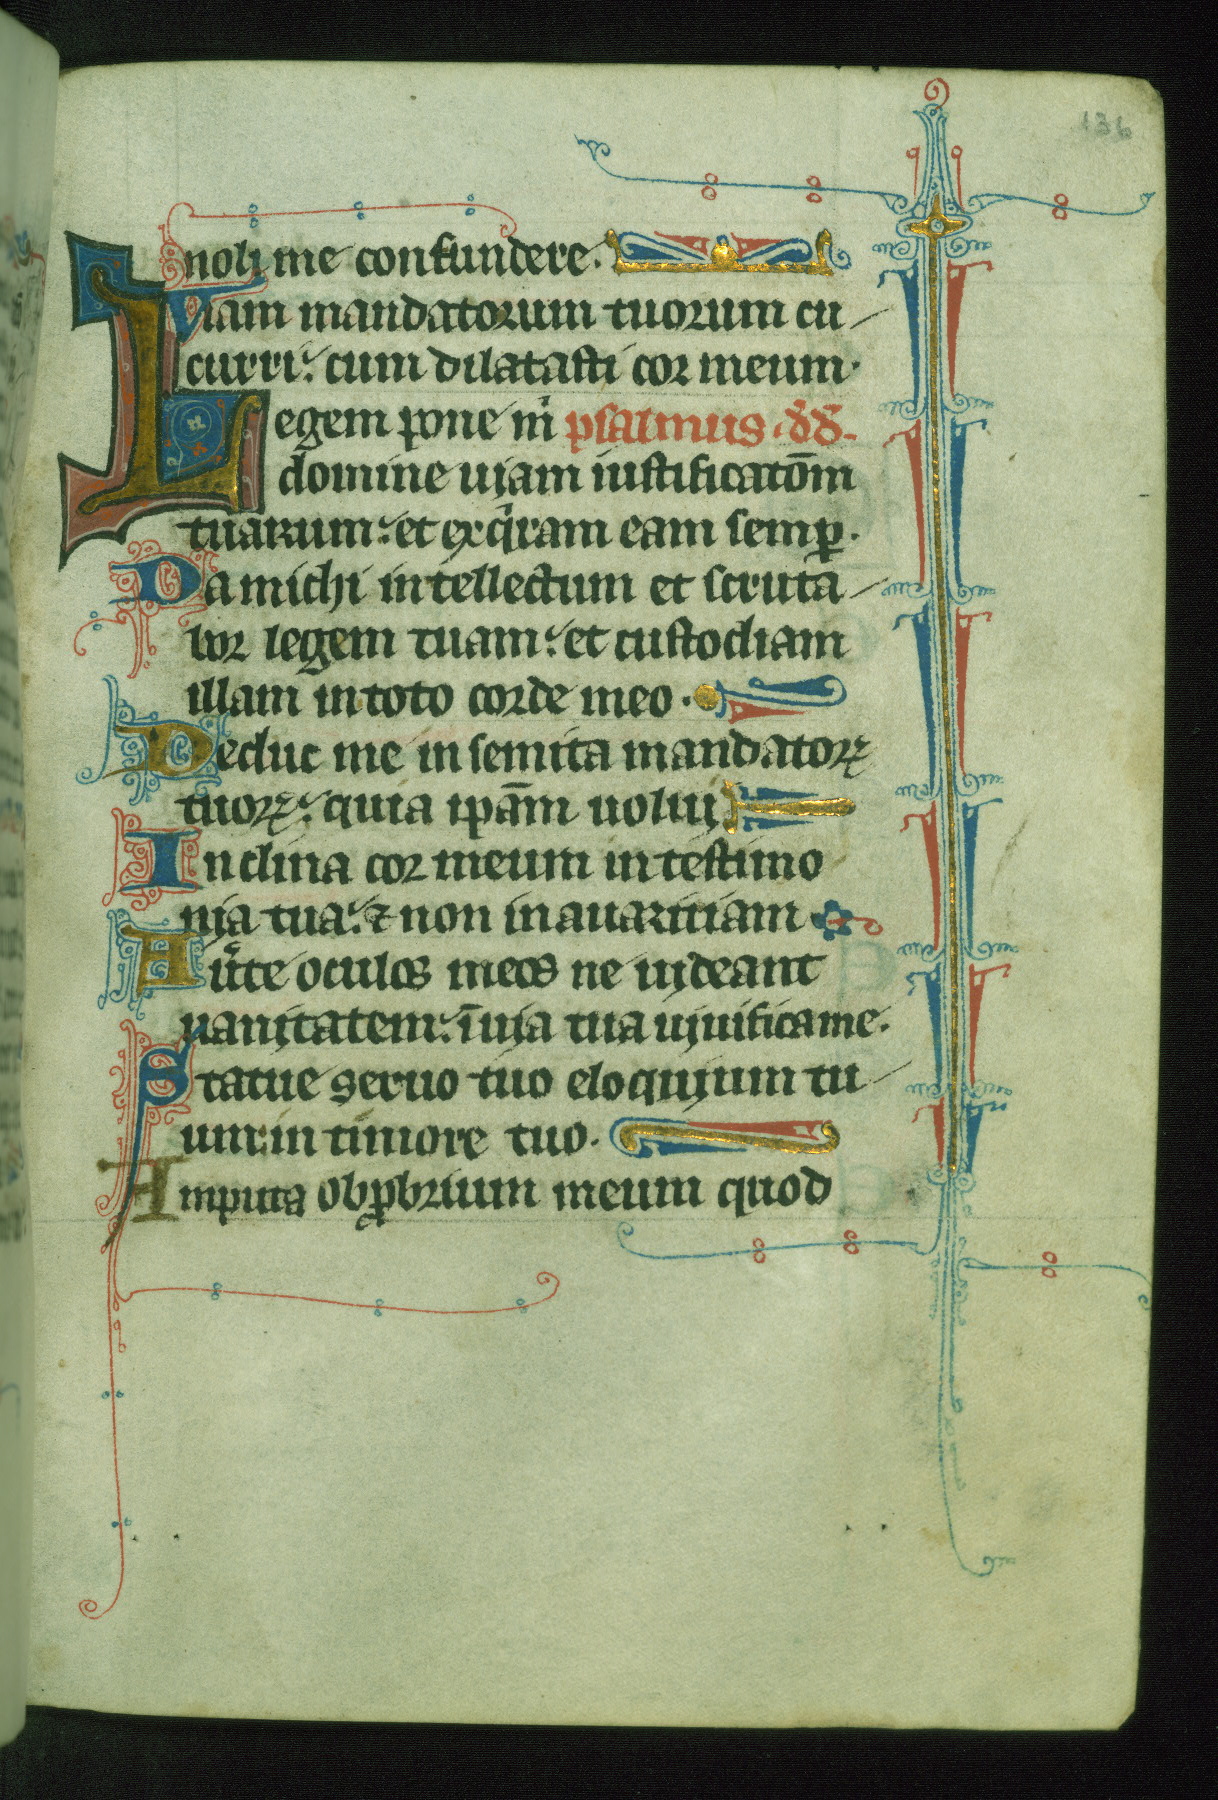 136
noli me confundere.
Viam mandatorum tuorum cu
curri: cum dilatasti cor meum.
Legem pone m̄ psalmus dd.
domine uiam iustificatōm
tuarum: et exq̇ram eam semꝑ.
Da michi intellectum et scruta
bor legem tuam: et custodiam
illam in toto corde meo.
Deduc me in semita mandatoꝝ
tuoꝝ: quia ip̄am uolui
Inclina cor meum in testimo
nia tua: ⁊ non in auaritiam
Au͛te oculos meos ne uideant
uanitatem: ī uia tua uiuifica me.
Statue seruo tuo eloquium tu
um: in timore tuo.
Amputa obꝓbrium meum quod